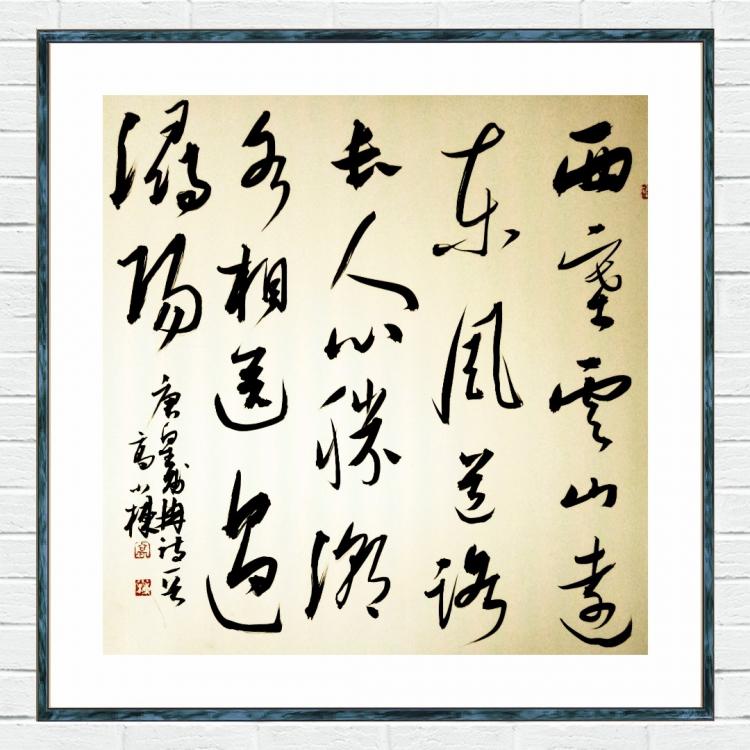 西塞雲山遠
東風道路
長人心勝潮
水相送過
潯陽
唐皇甫冉詩一首
高小